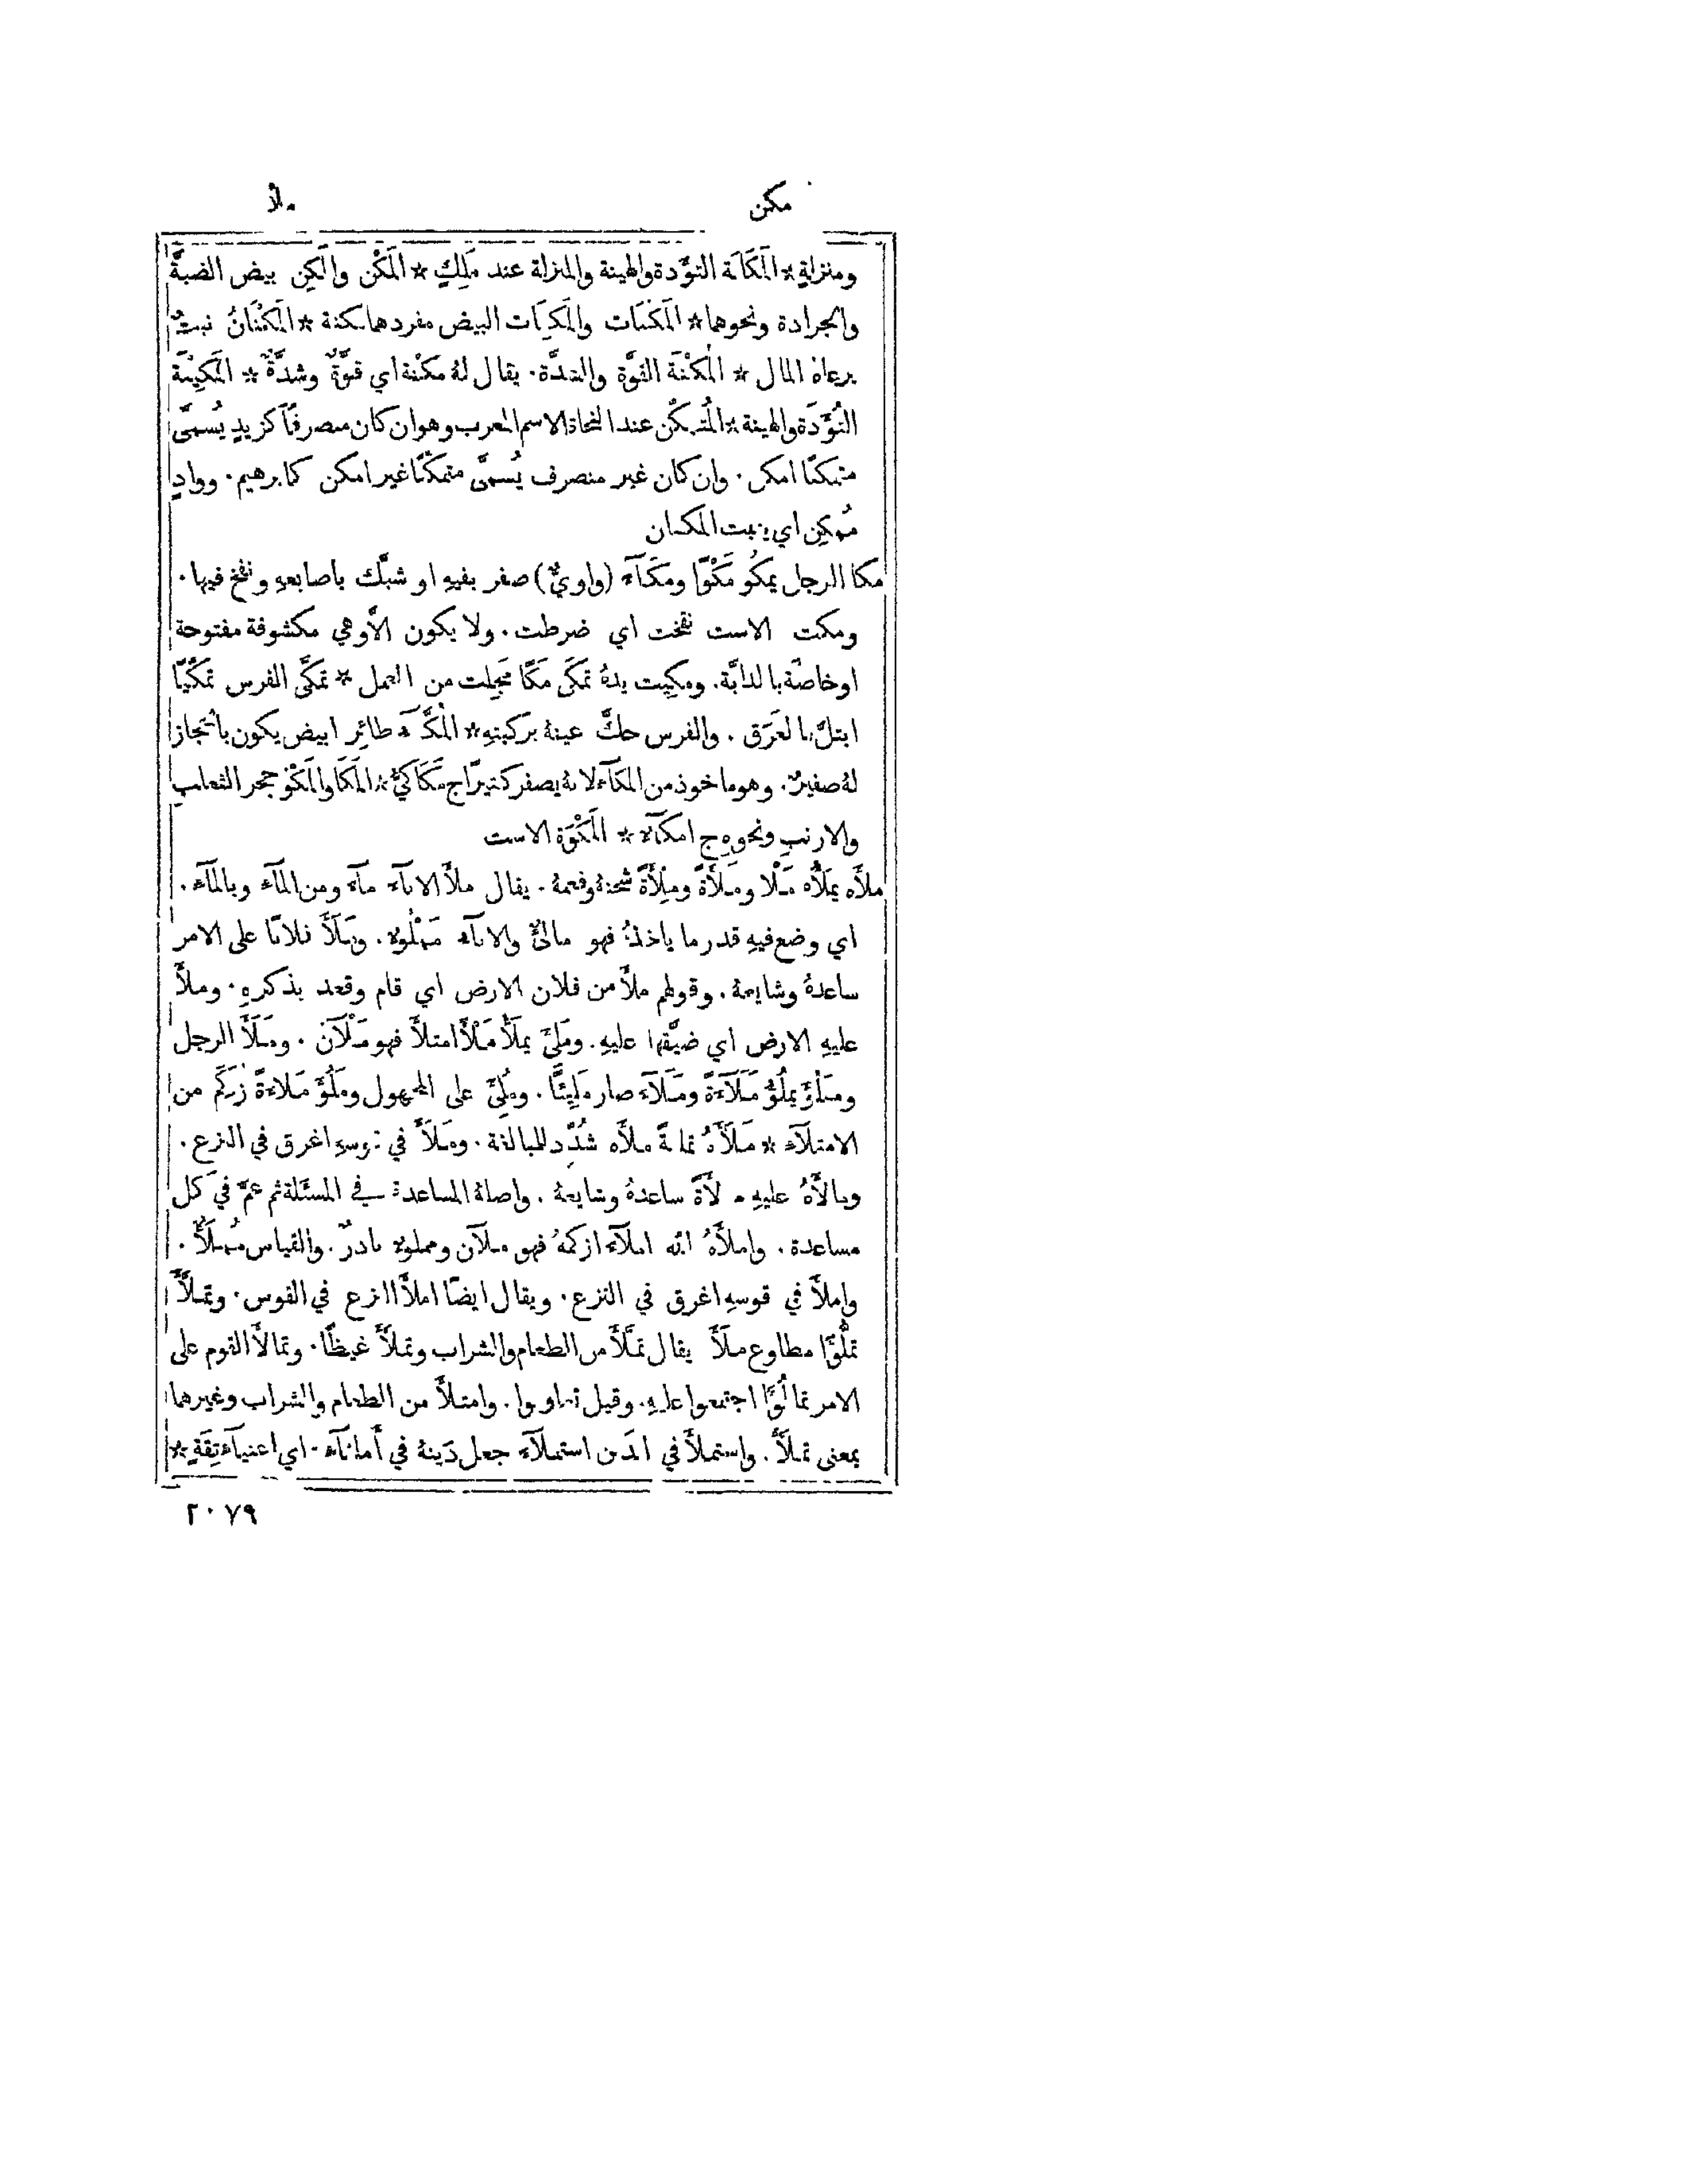 مكن ملأ
ومنزلةٍ * المَكَانَة التؤَّدة والهينة والمنزلة عند مَلِكٍ * المَكْن والمَكِن بيض الضبَّة
والجرادة ونحوها * المَكْنَات والمَكِنَات البيض مفردها مكنة * المَكْنَانُ نبتٌ
يرعاهُ المال * المُكْنَة القوَّة والشدَّة. يقال لهُ مكْنة اي قوَّةٌ وشدَّةٌ * المَكِينَة
التُؤَدَة والهينة * المُتَمكّن عند النحاة الاسم المعرب وهو ان كان منصرفًا كزيدٍ يُسمَّى
متمكنًا امكن. وان كان غير منصرف يُسمَّى متمكّنًا غير امكن كابرهيم. ووادٍ
مُمكِن اي ينبت المكنان
مكا الرجل يمكُو مَكْوًا ومكَآءً (واويٌّ) صفر بفيهِ او شبَّك باصابعهِ ونفخ فيها.
ومكت الاست نفخت اي ضرطت. ولا يكون الَّا وهي مكشوفة مفتوحة
او خاصَّة بالدابَّة. ومكِيت يدهُ تمكَى مَكًا مَجِلت من العمل * تمكَّى الفرس تمكّيًا
ابتلَّ بالعَرَق. والفرس حكَّ عينهُ بركبتهِ * المُكَّآء طائِر ابيض يكون بالحجاز
لهُ صفيرٌ. وهو ماخوذ من المكَآء لانهُ يصفر كثيرًا ج مَكَاكيُّ * المَكَا والمَكْو جحر الثعلب
والارنب ونحوهِ ج امكآء * المَكْوَة الاست
ملأَه يملَأُه مَلْأً ومَلْأَةً ومِلْأَةً شحنهُ وفعمهُ. يقال ملأَ الانآء مآءً ومن المآء وبالمآء.
اي وضع فيهِ قدر ما ياخذهُ فهو مالئٌ والانآء مَمْلُوء. ومَلَأَ فلانًا على الامر
ساعدهُ وشايعهُ. وقولهم ملأَ من فلان الارض اي قام وقعد بذكرهِ. وملأَ
عليهِ الارض اي ضيَّقها عليهِ. ومَلِئَ يملَأُ مَلْأً امتلأَ فهو مَلْآن. ومَلَأَ الرجل
ومَلُؤَ يملُؤُ مَلَآءَةً ومَلَآءً صار مَلِيئًا. ومُلِئَ على المجهول ومَلُؤَ مَلاءةً زُكِمَ من
الامتلآء * مَلَّأَهُ تملئةً ملأَه شُدِّد للمبالغة. ومَلَّأَ في قوسهِ اغرق في النزع.
ومالأَهُ عليهِ ممالأَةً ساعدهُ وشايعهُ. واصلهُ المساعدة في المسئلة ثم عمَّ في كل
مساعدة. واملأَهُ الله املآءً ازكمهُ فهو ملآن ومملوء نادرٌ. والقياس مُملَأٌ.
واملأَ في قوسهِ اغرق في النزع. ويقال ايضًا املأَ النزع في القوس. وتملَّأَ
تملُّؤًا مطاوع ملَّأَ يقال تملَّأَ من الطعام والشراب وتملَّأَ غيظًا. وتمالأَ القوم على
الامر تمالُؤًا اجتمعوا عليهِ. وقيل تعاونوا. وامتلأَ من الطعام والشراب وغيرهما
بمعنى تملَّأَ. واستملأَ في الدَين استملآءً جعل دَينهُ في أملئآءَ. اي اغنيآء ثِقَةٍ *
٢٠٧٩